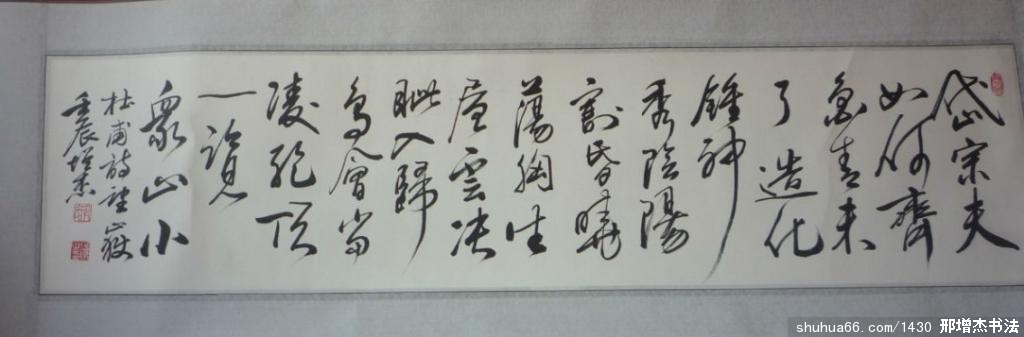 岱宗夫
如何齊
魯青未
了造化
鍾神
秀陰陽
割昏曉
蕩胸生
層雲决
眦入歸
鳥會當
凌絶頂
一覽
衆山小
杜甫詩望嶽
壬辰增杰
shuhua66.com/1430 邢增杰书法